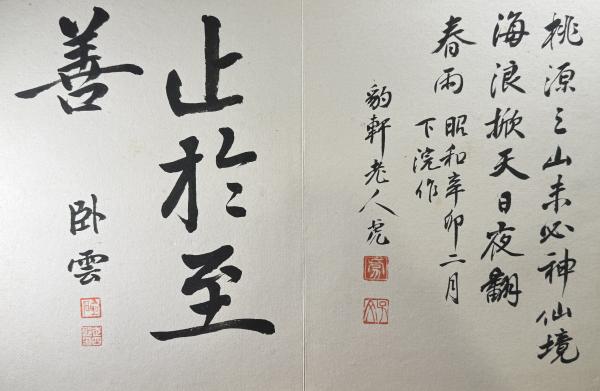 桃源三山未必神仙境
海浪掀天日夜翻
春雨 昭和辛卯二月
下浣作
豹軒老人虎
止於至
善
卧雲